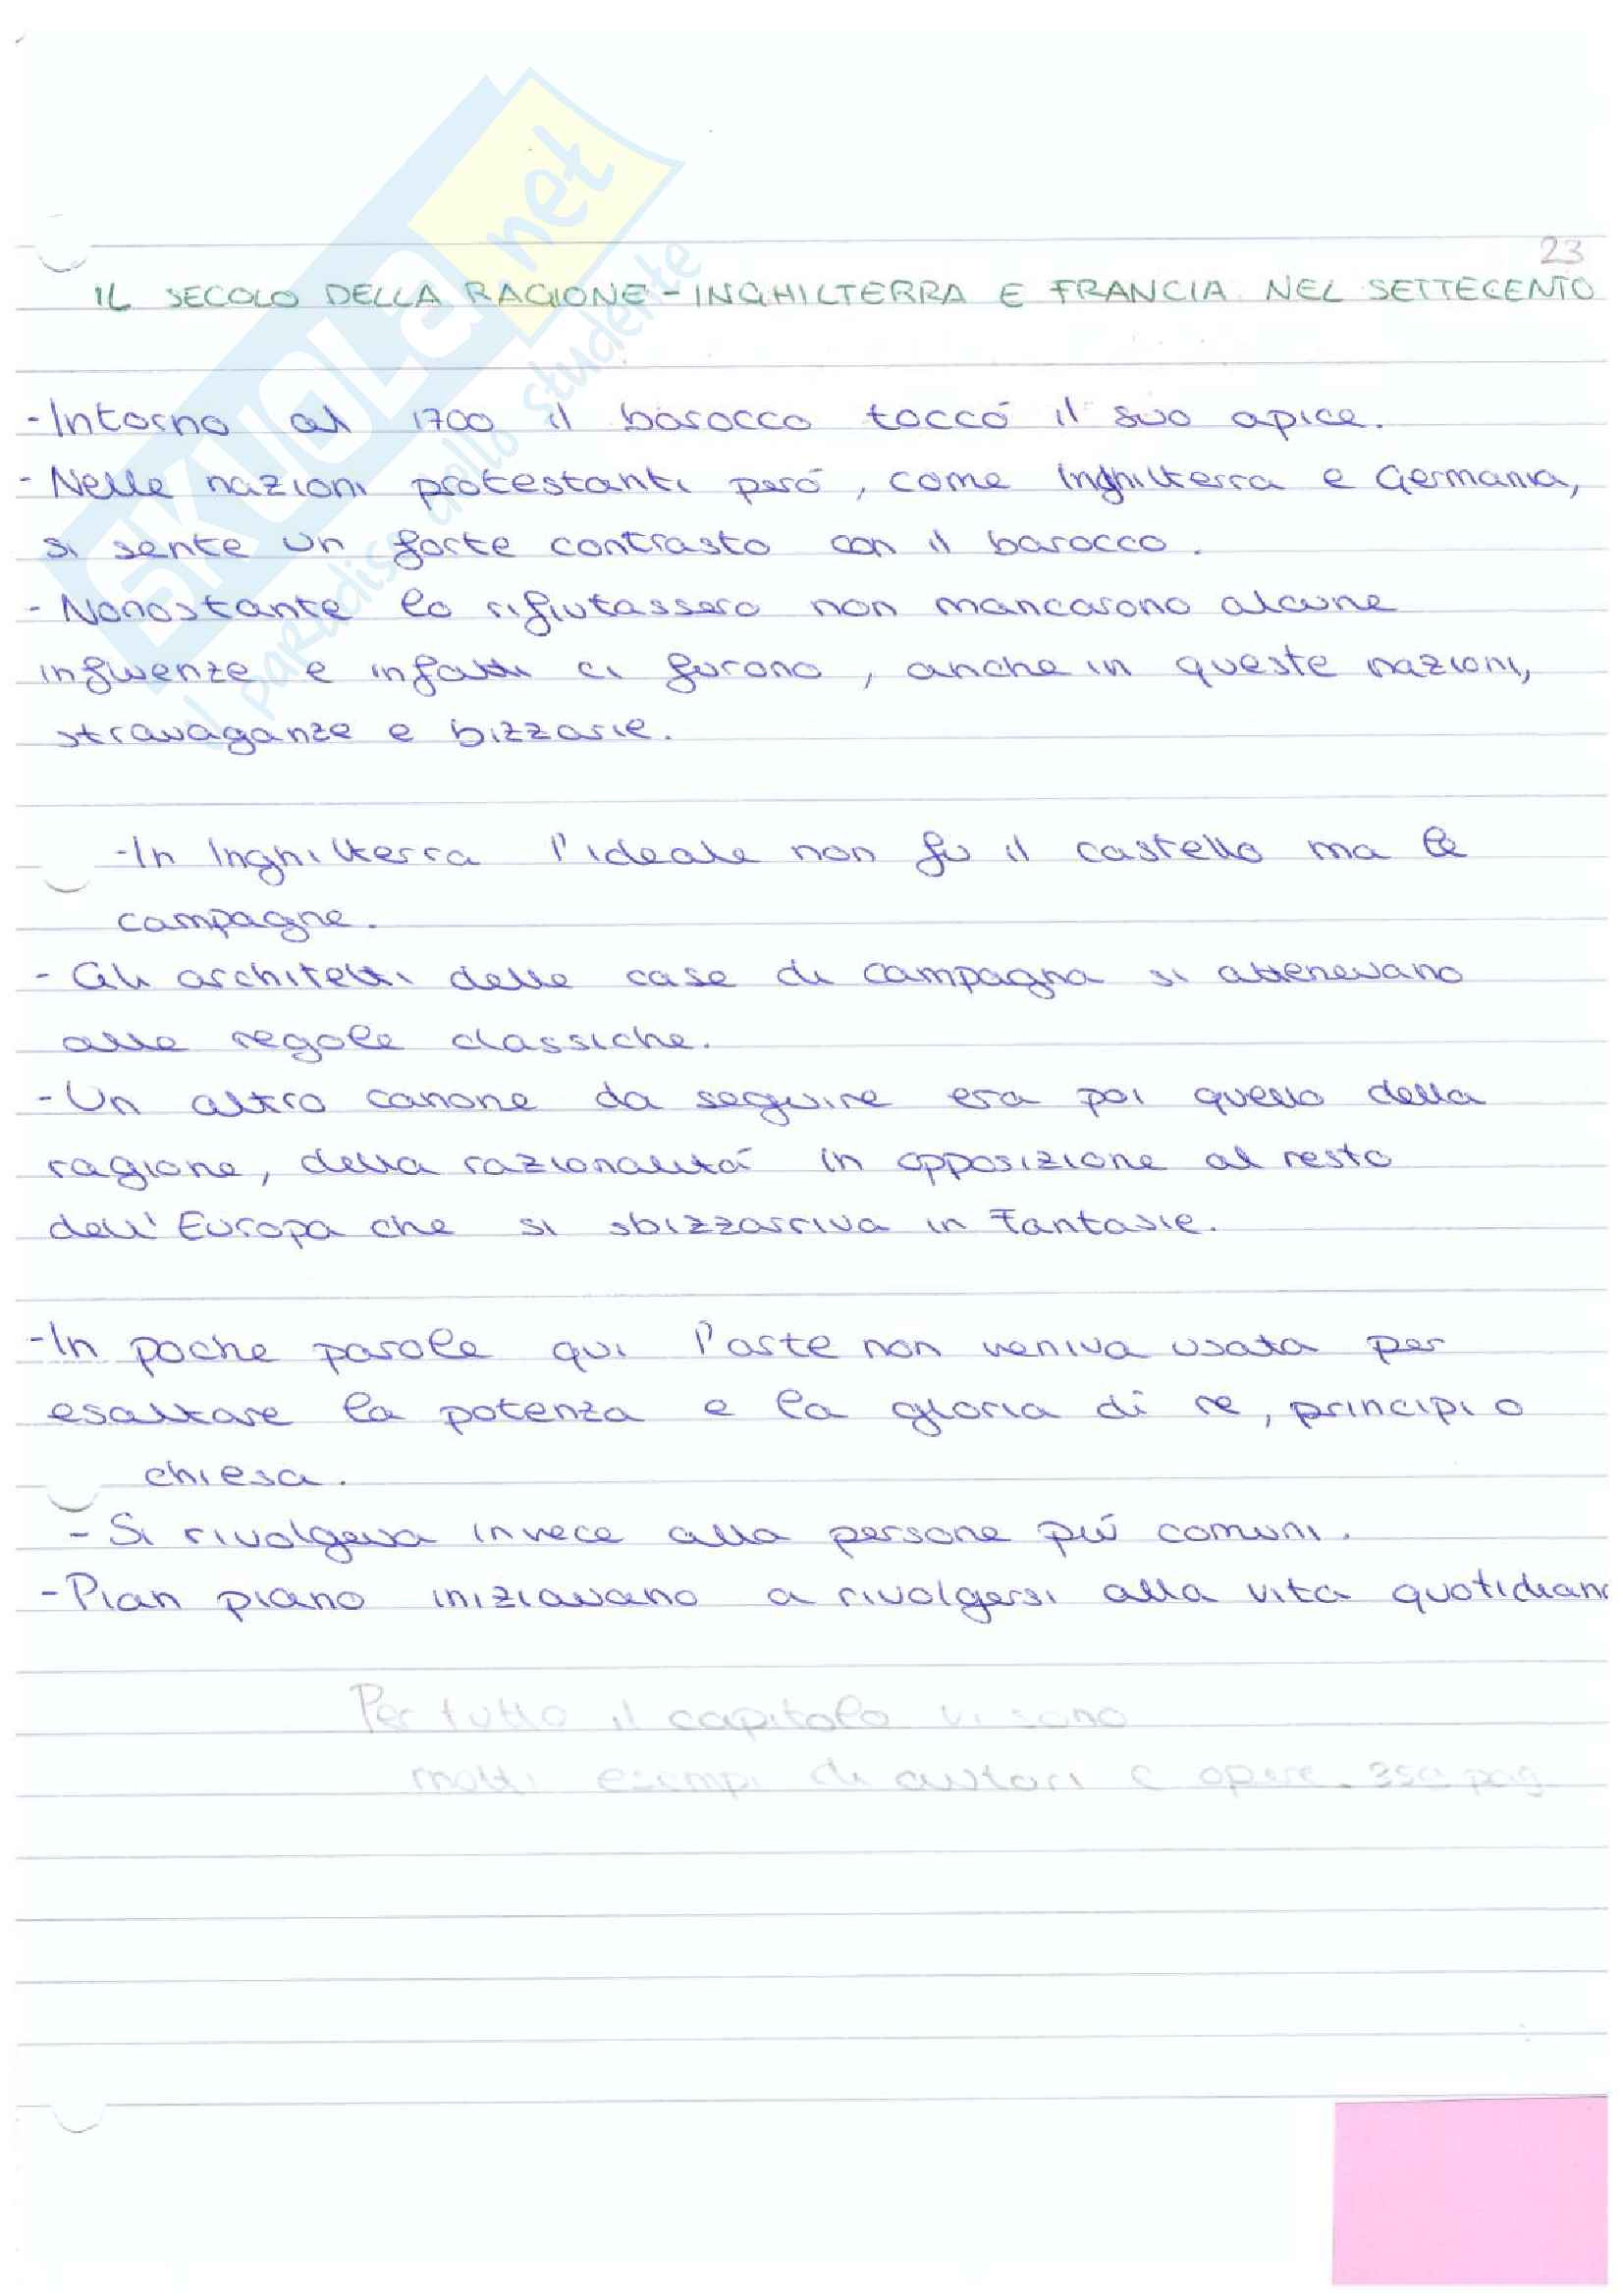 SKUOLA.net
il paradiso dello studente
23
IL SECOLO DELLA RAGIONE - INGHILTERRA E FRANCIA NEL SETTECENTO
- Intorno al 1700 il barocco toccó il suo apice.
- Nelle nazioni protestanti peró, come Inghilterra e Germania,
si sente un forte contrasto con il barocco.
- Nonostante lo rifiutassero non mancarono alcune
influenze e infatti ci furono, anche in queste nazioni,
stravaganze e bizzarie.
- In Inghilterra l'ideale non fu il castello ma le
campagne.
- Gli architetti delle case di campagna si attenevano
alle regole classiche.
- Un altro canone da seguire era poi quello della
ragione, della razionalitá in opposizione al resto
dell'Europa che si sbizzarriva in Fantasie.
- In poche parole qui l'arte non veniva usata per
esaltare la potenza e la gloria di re, principi o
chiesa.
- Si rivolgeva invece alla persone piú comuni.
- Pian piano iniziavano a rivolgersi alla vita quotidiana
Per tutto il capitolo vi sono
molti esempi di autori e opere. pag